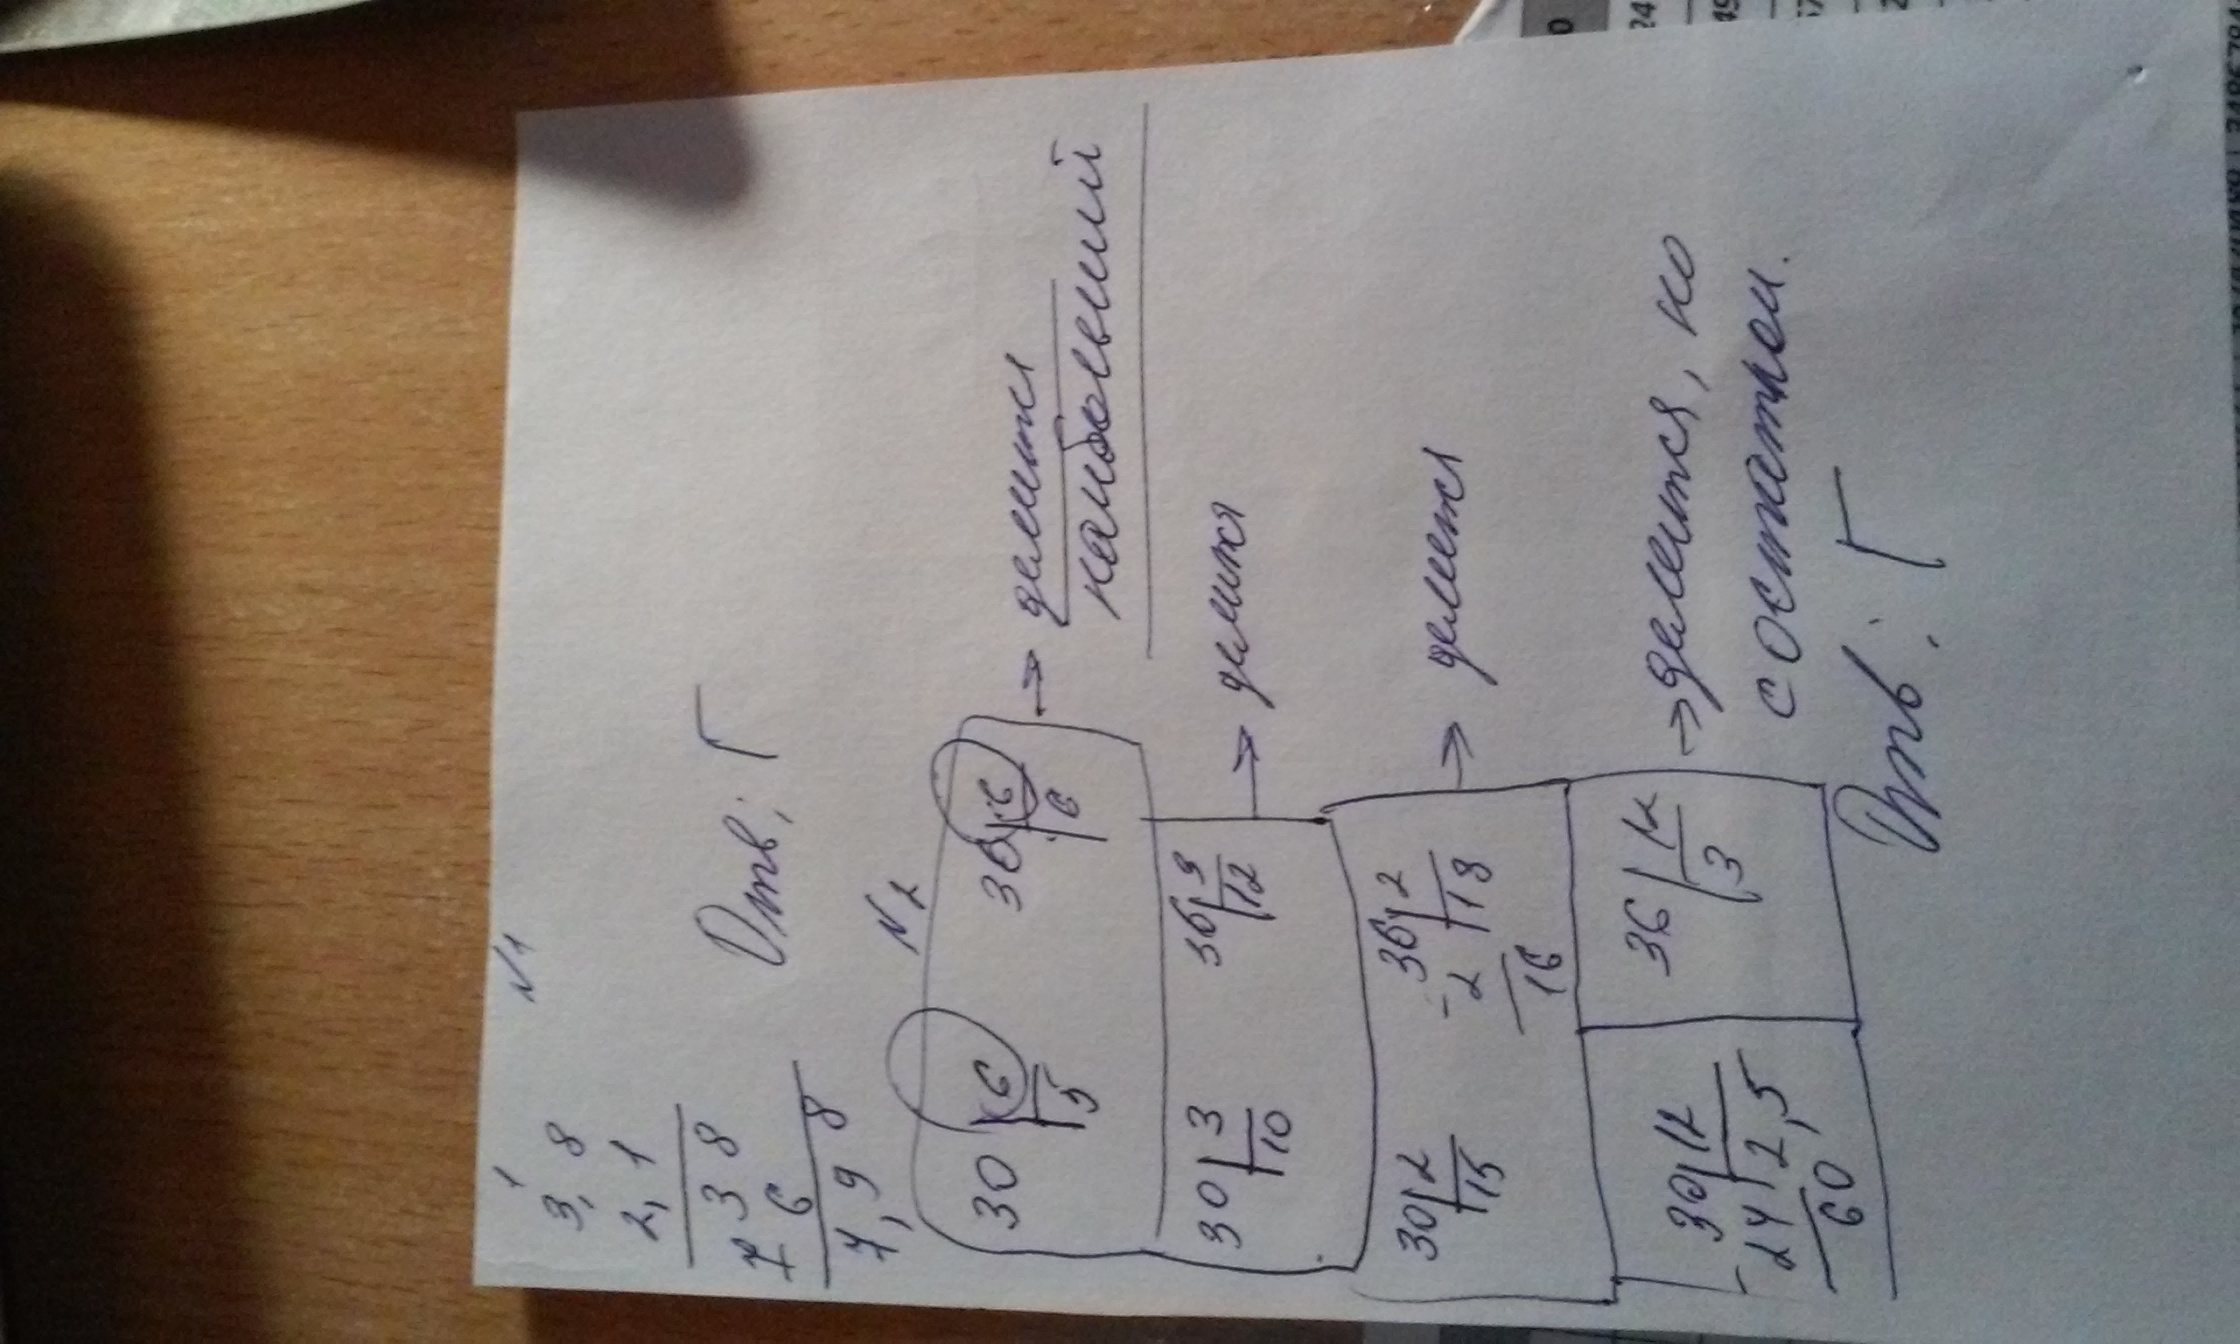 N1
3,8
2,1
38
76
7,98
Отв: Г
N2
30 6 36 6 → делится
5 6 наибольший
30 3 36 3 → делится
10 12
30 2 36 2 → делется
15 2 18
16
30 12 36 12 → делится, но
24 2,5 3 с остатком.
60
Отв: Г